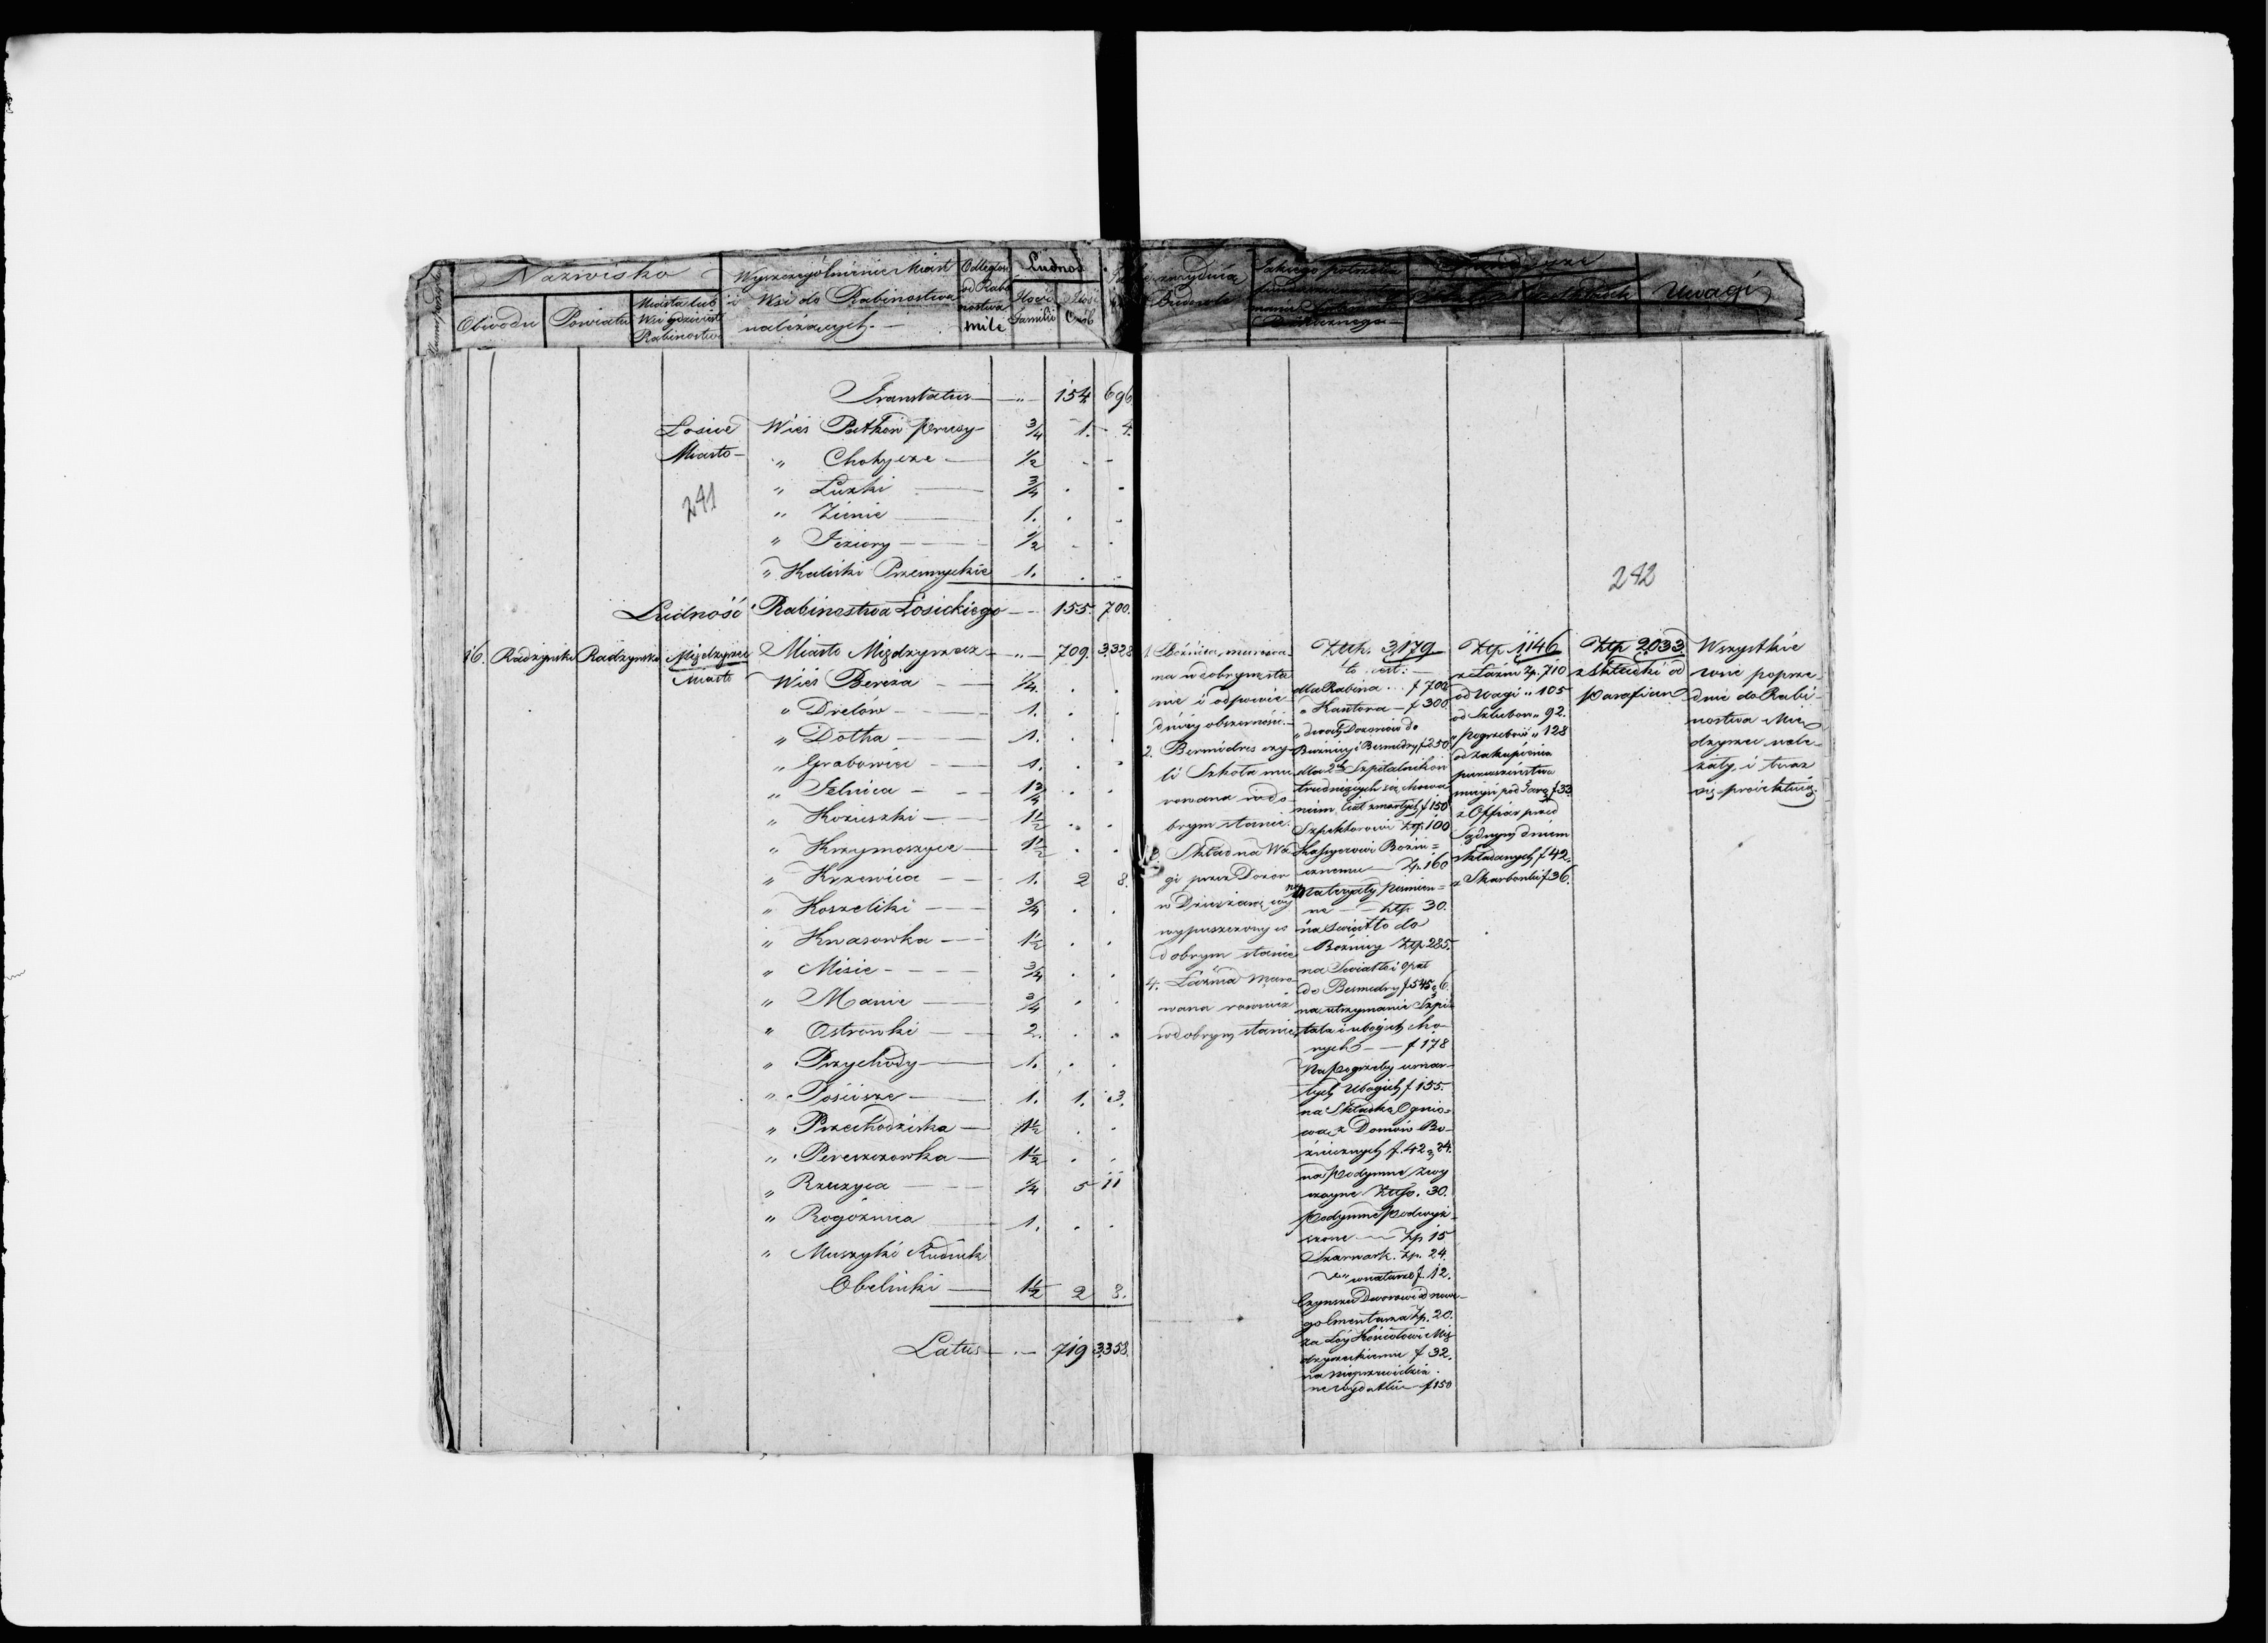 Nazwisko
Obwodu
Powiatu
Miasta lub
Wsi gdzie iest
Rabinostwo
Wyszczególnienie Miast
i Wsi do Rabinostwa
należących.
Odległość
od Rabi
nostwa
Mile
Ludność
Ilość
Familii
Ilość
Osób
Uwagi
Transtatus — „ — 154 696.
Łosice Wieś Patków Prusy 3/4 1. 4.
Miasto „ Chotycze 1/2 - -
„ Łuzki 3/4 . -
241
„ Zienie 1. . .
„ Jeziory 1/2 - .
„ Kaliski Przesmyckie 1. . .
Ludność Rabinostwa Łosickiego — 155. 700.
16. Radzyński Radzyński Międzyrzec Miasto Międzyrzecz — „ — 709. 3328
Miasto Wieś Bereza 1/4. . .
„ Drelów 1. . .
„ Dołha 1. . .
„ Grabowiec 1. . .
„ Jelnica 1 3/4 . .
„ Kożuszki 1 1/2 . .
„ Krzymoszyce 1 1/2 . .
„ Krzewica 1. 2 8.
„ Koszeliki 3/4 . .
„ Kwasowka 1 1/2 . .
„ Misie 3/4 . .
„ Manie 3/4 . .
„ Ostrowki 2. . .
„ Przychody 1. . .
„ Pościsze 1. 1. 3.
„ Przechodziska 1 1/2 . .
„ Pereszczowka 1 1/2 . .
„ Rzeczyca 1/4 5 11
„ Rogoźnica 1. . .
„ Muszyki Rudniki
Obelniki 1 1/2 2 8.
Latus — 719 3358.
242
1. Bóżnica murowa-
na w dobrym sta
nie i odpowie-
dniey obszerności.
2. Bermidres czy-
li Szkoła mu
rowana w do-
brym stanie.
3. Skład na Wa
gi przez Dozor
w Dzierżawę
wypuszczony w
dobrym stanie
4. Łaźnia Muro-
wana rownież
w dobrym stanie
Złtp. 3179
to iest:
dla Rabina f 702
„ Kantora — f 300.
„ dwoch Dozorców do
Bożnicy i Besmedry f 250
dla 2ch Szpitalników
trudniących się chowa
niem Ciał zmarłych f 150
Szpektorowi Złp. 100
Kassyerowi Bożni=
cznemu — Zp. 160
na Materyały Pismien=
ne — złtp. 30.
na Swiatło do
Bożnicy złp 285.
na Swiatło i opał
do Besmedry f 545 g 6.
na utrzymanie Szpi-
tala i ubogich cho-
rych — f 178
Na Pogrzeby umar-
łych Ubogich f 155.
na Składkę Ognio-
wą z Domów Bo-
źnicznych f. 42 g 24.
na Podymne zwy
czayne Złtp. 30.
Podymne Podwyż-
szone — Zp 15
Szarwark. Zp. 24.
„ w naturze f. 12.
Czynszu Dworowi od nowe-
go Cmentarza Zp. 20.
za Łóy Kościołowi Mię
dzyrzeckiemu f 32.
na nieprzewidzia
ne wydatki — f 150
Złp 1146
z Łaźni Zp. 710
od Wagi „ 105
od Szlubow „ 92.
„ Pogrzebow „ 128
od zakupienia
pierwszeństwa
mieysc pod Torą f 33
z Offiar przed
Sądnym dniem
składanych f 42.
z Skarbonki f 36.
Złp 2033.
z Składki od
Parafian
Wszystkie
wsie poprze-
dnio do Rabi-
nostwa Mię
dzyrzec nale-
żały, i teraz
się proiektuią.